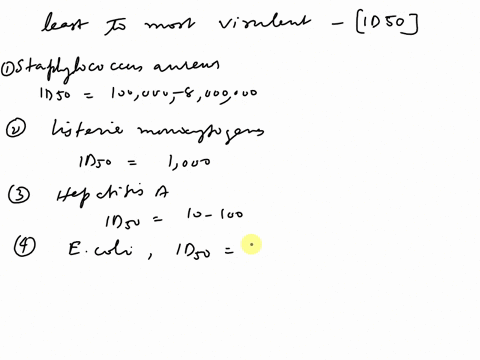 least to most virulent - [ID50]
① Staphylococcus aureus
ID50 = 100,000,-8,000,000
② Listerie monocytogens
ID50 = 1,000
③ Hepatitis A
ID50 = 10-100
④ E.coli, ID50 =